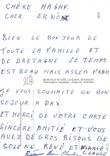 CHÈRE MAGHY
CHER ERNÖ
BIEN LE BONJOUR DE
TOUTE LA FAMILLE ET
DE BRETAGNE LE TEMPS
EST BEAU MAIS ASSEZ FRAIS
JE VOUS SOUHAITE UN BON
SEJOUR A DAX
ET MERCI DE VOTRE CARTE
SINCERE AMITIÉ ET VOUS
AVEZ DE GROS BISOUS DE
SOLENN, RENÉ ET MARIE